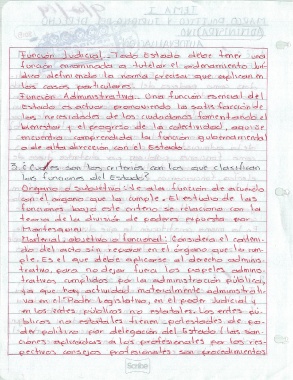 Función Judicial. Todo Estado debe tener una
función encaminada a tutelar el ordenamiento Jurí
dico definiendo la norma precisa que aplican en
los casos particulares.
Función Administrativa. Una función esencial del
Estado es actuar promoviendo la satisfacción de
las necesidades de los ciudadanos fomentando el
bienestar y el progreso de la colectividad, aquí se
encuentra comprendida la función gubernamental
o de alta dirección con el Estado.
3. ¿Cuáles son los criterios con los que clasifican
las funciones del Estado?
Orgánico o subjetivo: de a la función de acuerdo
con el órgano que la cumple. El estudio de las
funciones bajo este criterio se relaciona con la
teoría de la división de poderes expuesta por
Montesquieu
Material, objetivo o funcional: Considera el conteni
do del acto sin reparar en el órgano que lo cum
ple. Es el que debe aplicarse al derecho adminis-
trativo, para no dejar fuera los papeles adminis
trativos cumplidos por la administración pública,
ya que hay actividad materialmente administrati
va en el Poder Legislativo, en el poder Judicial y
en los entes públicos no estatales. Los entes pú-
blicos no estatales tienen potestades de po-
der político por delegación del Estado (las san-
ciones aplicadas a los profesionales por los res-
pectivos consejos profesionales son procedimientos
Scribe